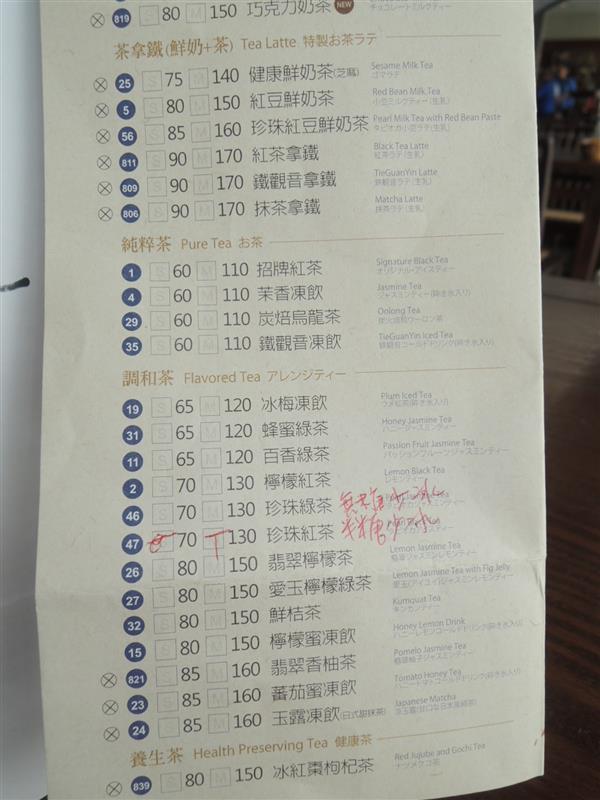 819 S 80 M 150 巧克力奶茶 NEW チョコレートミルクティー
茶拿鐵(鮮奶+茶) Tea Latte 特製お茶ラテ
25 S 75 M 140 健康鮮奶茶(芝麻) Sesame Milk Tea
ゴマラテ
5 S 80 M 150 紅豆鮮奶茶 Red Bean Milk Tea
小豆ミルクティー(生乳)
56 S 85 M 160 珍珠紅豆鮮奶茶 Pearl Milk Tea with Red Bean Paste
タピオカ小豆ラテ(生乳)
811 S 90 M 170 紅茶拿鐵 Black Tea Latte
紅茶ラテ(生乳)
809 S 90 M 170 鐵觀音拿鐵 TieGuanYin Latte
鉄観音ラテ(生乳)
806 S 90 M 170 抹茶拿鐵 Matcha Latte
抹茶ラテ(生乳)
純粹茶 Pure Tea お茶
1 S 60 M 110 招牌紅茶 Signature Black Tea
オリジナル・アイスティー
4 S 60 M 110 茉香凍飲 Jasmine Tea
ジャスミンティー(砕き氷入り)
29 S 60 M 110 炭焙烏龍茶 Oolong Tea
炭火焙煎ウーロン茶
35 S 60 M 110 鐵觀音凍飲 TieGuanYin Iced Tea
鉄観音コールドドリンク(砕き氷入り)
調和茶 Flavored Tea アレンジティー
19 S 65 M 120 冰梅凍飲 Plum Iced Tea
ウメ紅茶(砕き氷入り)
31 S 65 M 120 蜂蜜綠茶 Honey Jasmine Tea
ハニージャスミンティー
11 S 65 M 120 百香綠茶 Passion Fruit Jasmine Tea
パッションフルーツジャスミンティー
2 S 70 M 130 檸檬紅茶 Lemon Black Tea
レモンティー
46 S 70 M 130 珍珠綠茶 無糖少冰
47 70 130 珍珠紅茶 半糖少冰
26 S 80 M 150 翡翠檸檬茶 Lemon Jasmine Tea
翡翠ジャスミンレモンティー
27 S 80 M 150 愛玉檸檬綠茶 Lemon Jasmine Tea with Fig Jelly
愛玉(アイユイ)ジャスミンレモンティー
32 S 80 M 150 鮮桔茶 Kumquat Tea
キンカンティー
15 S 80 M 150 檸檬蜜凍飲 Honey Lemon Drink
ハニーレモンコールドドリンク(砕き氷入り)
821 S 85 M 160 翡翠香柚茶 Pomelo Jasmine Tea
翡翠柚子ジャスミンティー
23 S 85 M 160 蕃茄蜜凍飲 Tomato Honey Tea
ハニートマトコールドドリンク(砕き氷入り)
24 S 85 M 160 玉露凍飲(日式甜抹茶) Japanese Matcha
養生茶 Health Preserving Tea 健康茶
839 S 80 M 150 冰紅棗枸杞茶 Red Jujube and Gochi Tea
ナツメクコ茶